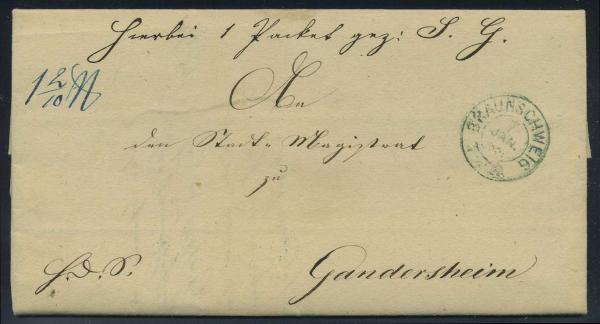 Hierbei 1 Packet gez: S. G.
1 2/10 ℔
An
den Stadt-Magistrat
BRAUNSCHWEIG
JAN.
zu
H. D. S.
Gandersheim